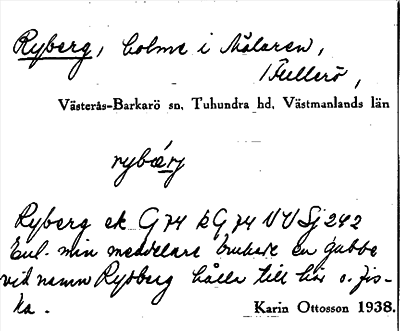 Ryberg, holme i Mälaren,
/Fullerö,
Västerås-Barkarö sn, Tuhundra hd, Västmanlands län
rybærj
Ryberg ek G 74 k G 74 NV Sj 242
Enl. min meddelare brukade en gubbe
vid namn Rydberg hålla till här o. fis-
ka.
Karin Ottosson 1938.